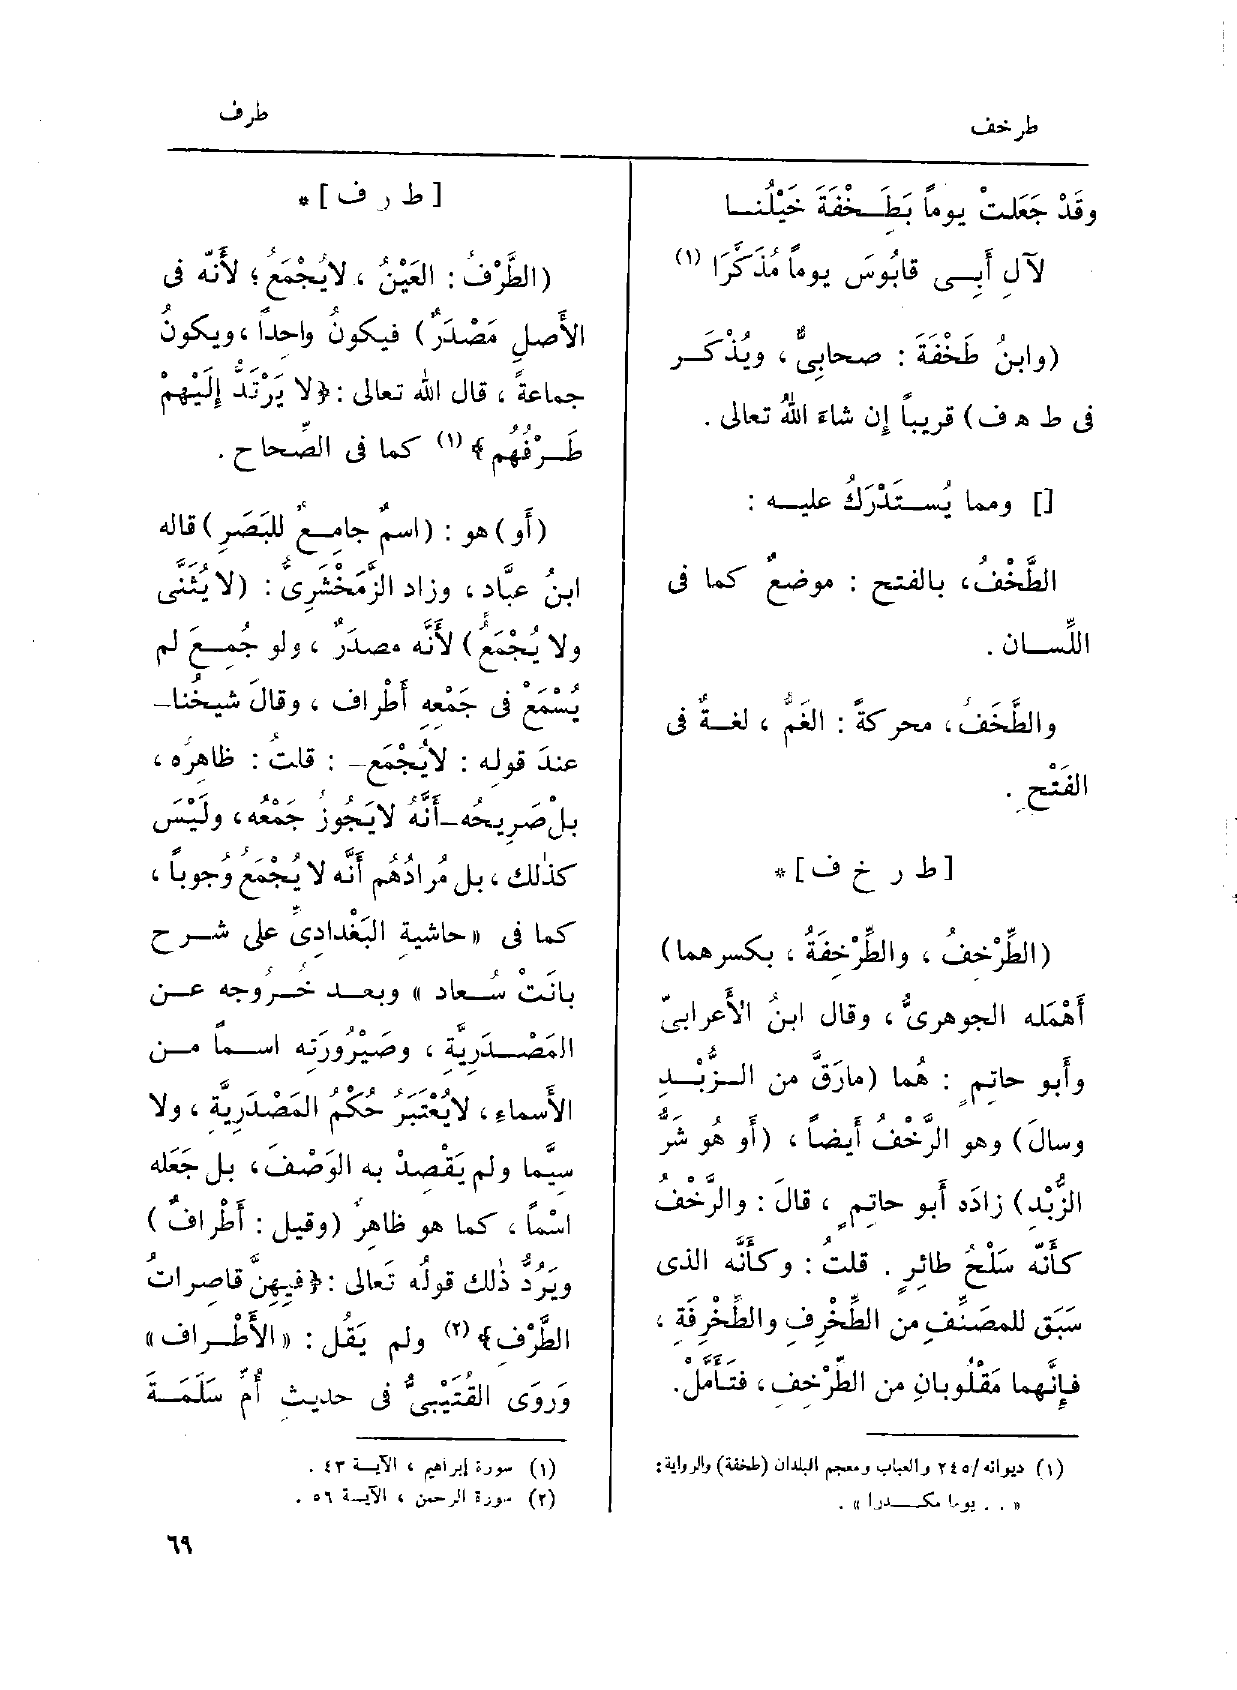 طرخف
طرف
وقَدْ جَعَلتْ يوماً بَطَـخْفَةَ خَيْلُنـا
لآلِ أَبِـى قابُوسَ يوماً مُذَكَّرَا (١)
(وابنُ طَخْفَةَ : صحابِىٌّ ، ويُذْكَـر
فى ط ه ف) قريباً إن شاءَ اللهُ تعالى .
[] ومما يُسـتَدْرَكُ عليـه :
الطَّخْفُ، بالفتح : موضعٌ كما فى
اللِّسـان .
والطَّخَفُ، محركةً : الغَمُّ ، لغـةٌ فى
الفَتْحِ .
[ ط ر خ ف ] *
(الطِّرْخِفُ ، والطِّرْخِفَةُ ، بكسرهما)
أَهْمَلَه الجوهرىُّ ، وقال ابنُ الأَعرابىّ
وأَبو حاتِمٍ : هُما (مارَقَّ من الـزُّبْـدِ
وسالَ) وهو الرَّخْفُ أَيضاً ، (أَو هُو شَرُّ
الزُّبْدِ) زادَه أَبو حاتِمٍ ، قالَ : والرَّخْفُ
كأَنّه سَلْحُ طائِرٍ . قلتُ : وكأَنَّه الذى
سَبَق للمصَنِّفِ من الطِّخْرِفِ والطِّخْرِفَةِ ،
فإِنَّهما مَقْلُوبانِ من الطِّرْخِفِ ، فتَأَمَّلْ.
(١) ديوانه/٢٤٥ والعباب ومعجم البلدان (طخفة) والرواية:
« . . يوما مكـدرا » .
[ ط ر ف ] *
(الطَّرْفُ : العَيْنُ ، لايُجْمَعُ ؛ لأَنّه فى
الأَصلِ مَصْدَرٌ) فيكونُ واحداً ، ويكونُ
جماعةً ، قال الله تعالى : ﴿لا يَرْتَدُّ إِلَيْهِمْ
طَـرْفُهُم﴾ (١) كما فى الصِّحاح .
(أَو) هو : (اسمٌ جامِـعٌ للبَصَرِ) قاله
ابنُ عبَّاد ، وزاد الزَّمَخْشَرِىُّ : (لا يُثَنَّى
ولا يُجْمَعُ) لأَنَّه مصدَرٌ ، ولو جُمِـعَ لم
يُسْمَعْ فى جَمْعِهِ أَطْراف ، وقالَ شيخُنا-
عندَ قوله : لايُجْمَع- : قلتُ : ظاهرُه ،
بل صَرِيحُه-أَنَّهُ لايَجُوزُ جَمْعُه ، ولَيْسَ
كذٰلك ، بل مُرادُهُم أَنَّه لا يُجْمَعُ وُجوباً ،
كما فى «حاشية البَغْدادِىِّ على شـرح
بانَتْ سُـعاد » وبعـد خُـرُوجه عـن
المَصْـدَرِيَّة ، وصَيْرُورَتِه اسـماً مـن
الأَسماءِ ، لايُعْتَبَرُ حُكْمُ المَصْدَرِيَّة ، ولا
سيَّما ولم يَقْصِدْ به الوَصْفَ ، بل جَعَله
اسْماً ، كما هو ظاهرٌ (وقيل : أَطْرافٌ)
ويَرُدُّ ذٰلك قولُه تَعالى : ﴿فِيهِنَّ قاصِراتُ
الطَّرْفِ﴾ (٢) ولم يَقُل : «الأَطْـراف»
وَرَوَى القُتَيْبِىُّ فى حديثِ أُمِّ سَلَمَـةَ
(١) سورة إبراهيم ، الآيـة ٤٣ .
(٢) سورة الرحمن ، الآيـة ٥٦ .
٦٩